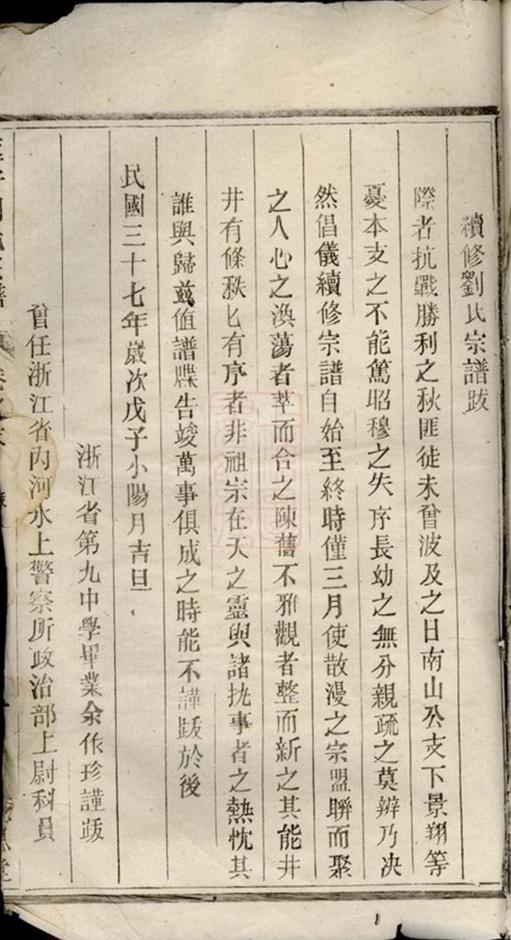 續修劉氏宗譜跋
際者抗戰勝利之秋匪徒未曾波及之日南山公支下景翔等
憂本支之不能篤昭穆之失序長幼之無分親疏之莫辨乃决
然倡儀續修宗譜自始至終時僅三月使散漫之宗盟聯而聚
之人心之渙蕩者萃而合之陳舊不雅觀者整而新之其能井
井有條秩匕有序者非祖宗在天之靈與諸执事者之熱忱其
誰與歸茲值譜牒告竣萬事俱成之時能不謹跋於後
民國三十七年歲次戊子小陽月吉旦
浙江省第九中學畢業余作珍謹跋
曾任浙江省內河水上警察所政治部上尉科員